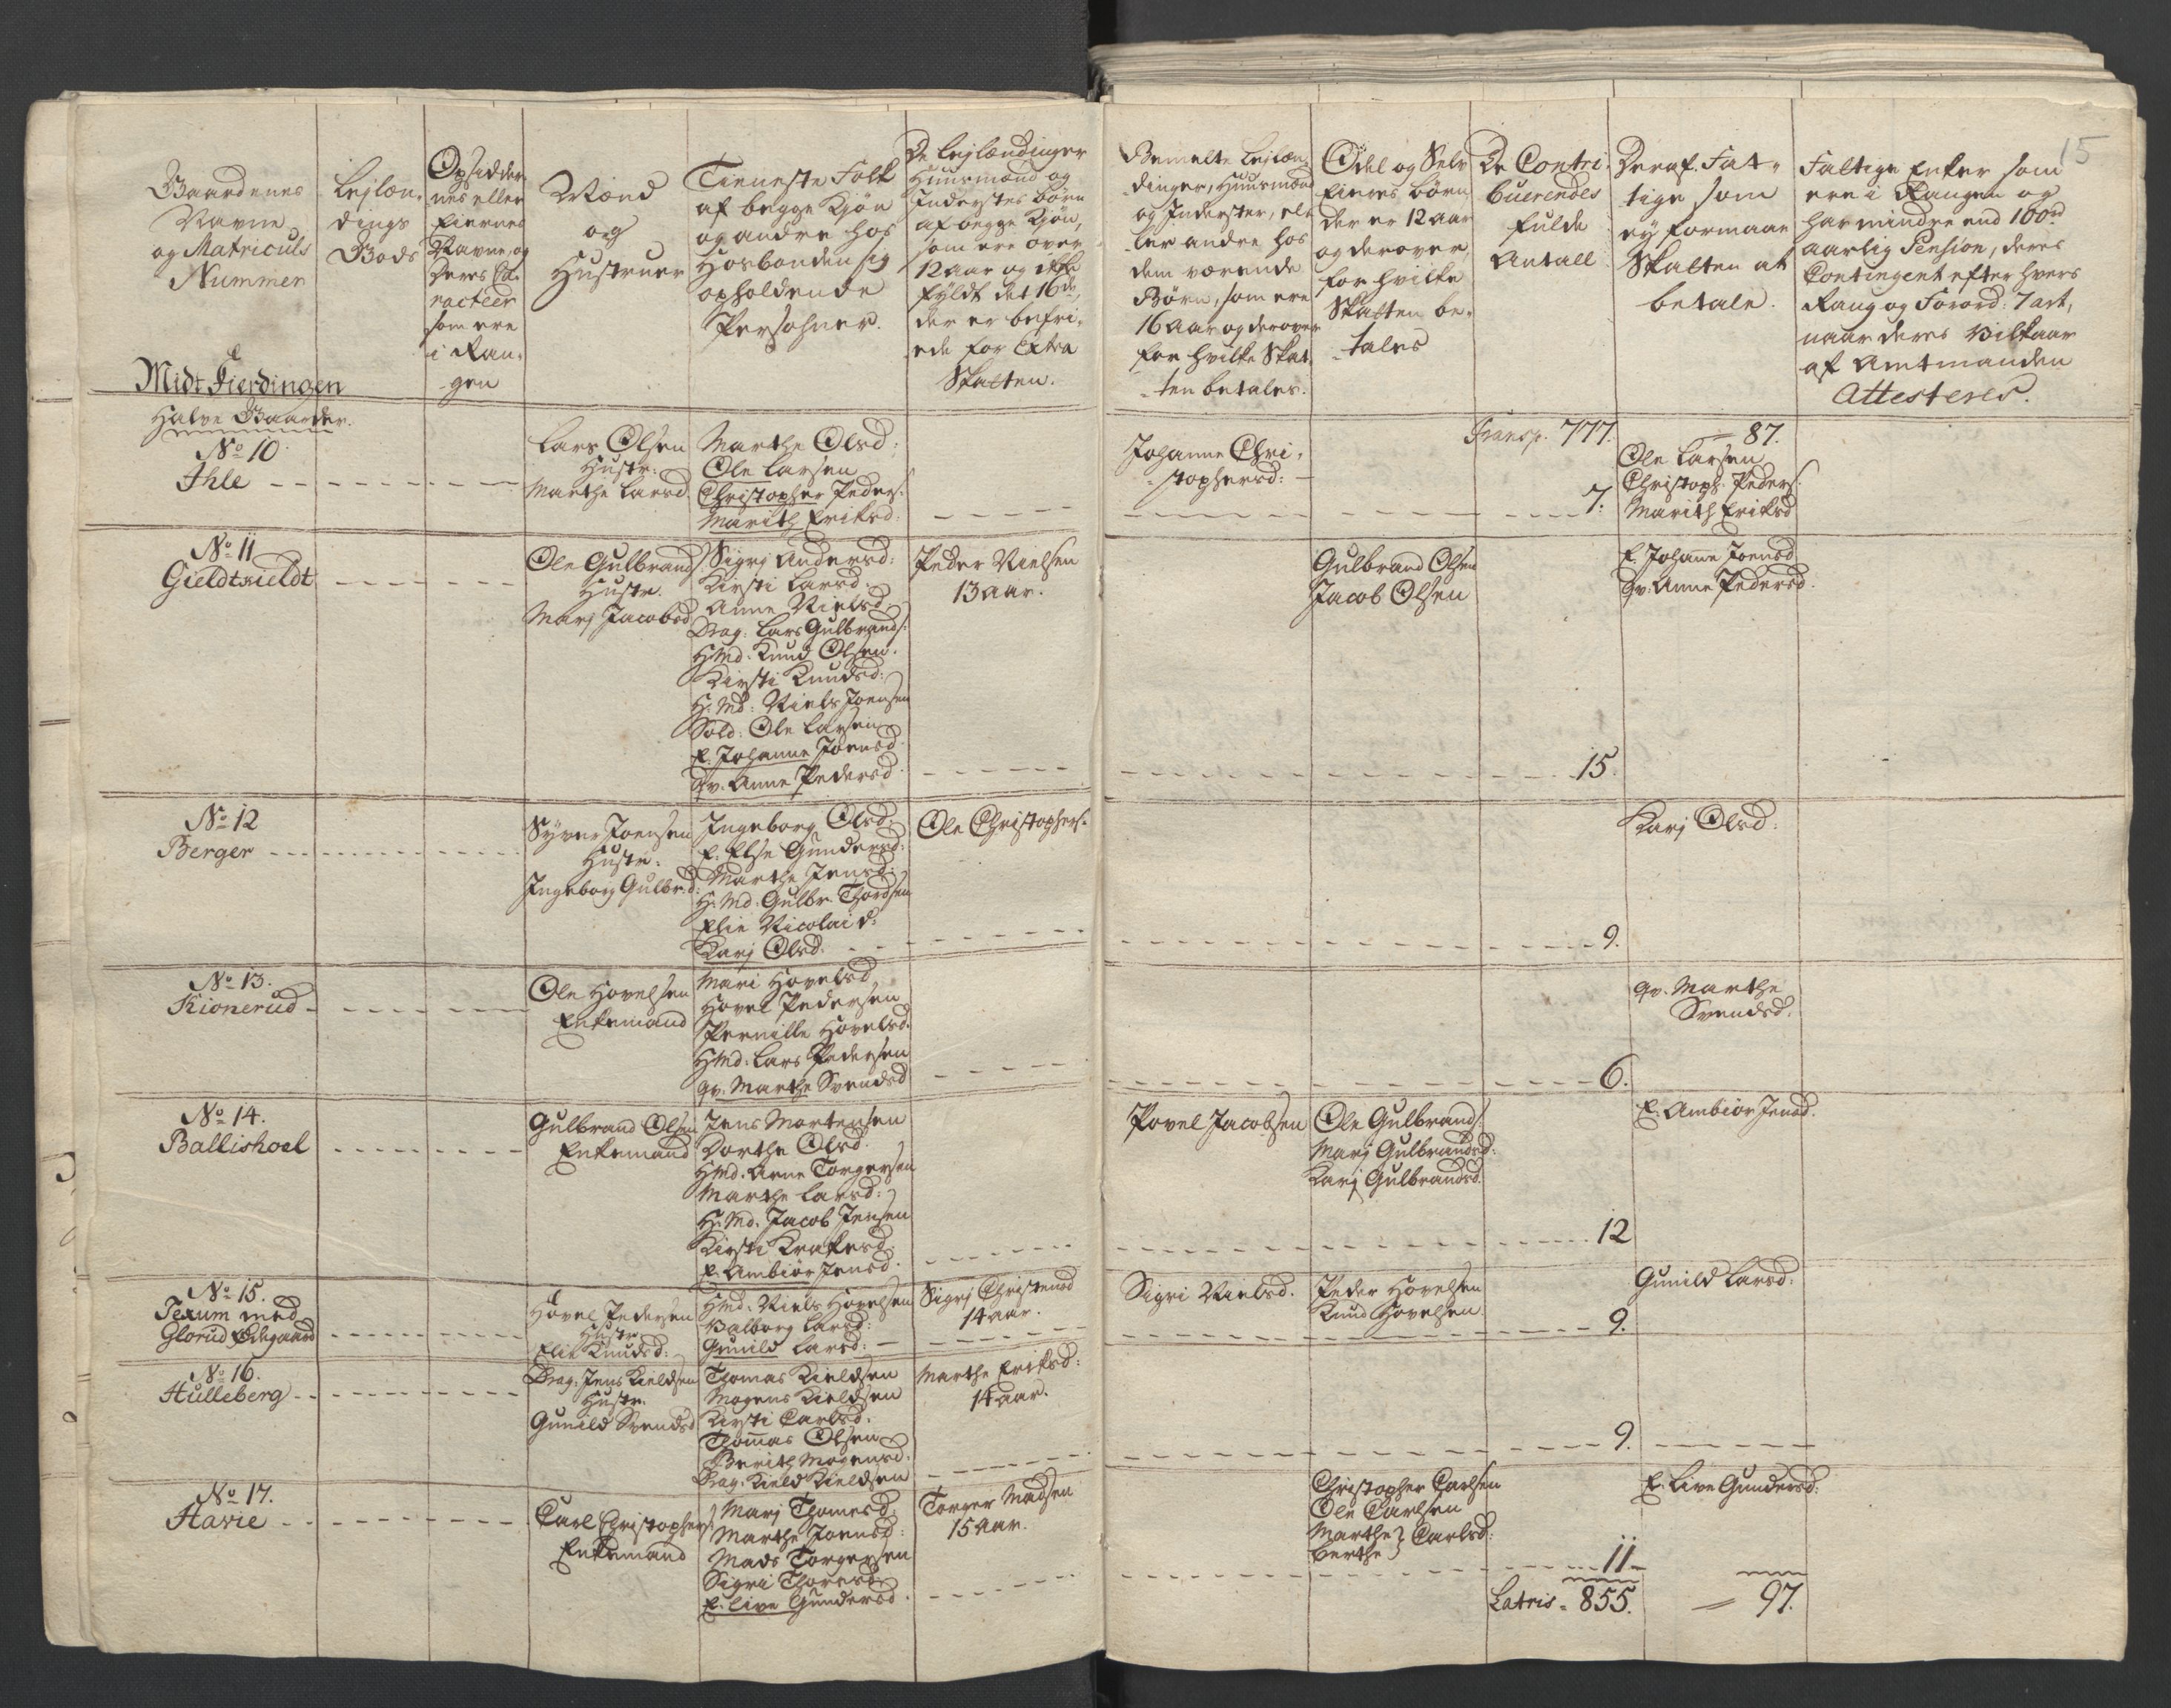 15
Gaardenes
Navne
og Matriculs
Nummer
Midt Fierdingen
Leilæn-
dings
Bods
Opsidder
nes eller
Eiernes
Navne og
Deres Ca-
racteer
som ere
i Ran-
gen
Mænd
og
Hustruer
Tieneste Folk
af begge Kiøn
og andre hos
Hosbonden sig
opholdende
Persohner.
De Lejlændinger
Huusmænd og
Inderster børn
af begge Kiøn,
som ere over
12 aar og ikke
fyldt det 16de,
der er befri-
ede for Extra
Skatten.
Bemelte Lejlæn-
dinger, Huusmænd
og Inderster, el-
ler andre hos
dem værende
Børn, som ere
16 Aar og derover
for hvilke Skat-
ten betales.
Odel og Selv
Eieres børn
der er 12 aar
og derover,
for hvilke
Skatten be-
tales
De Contri-
buerendes
fulde
Antall
Deraf. Fat-
tige som
ey formaar
Skatten at
betale.
Fattige Enker som
ere i Rangen og
har mindre end 100rd
aarlig Pension, deres
Contingent efter hvers
Rang og Forord: 7 art,
naar deres Vilkaar
af Amtmanden
Attesteres.
Halve Gaarder.
No 10
Ihle
Lars Olsen
Hustr:
Marthe Larsd
Marthe Olsd:
Ole Larsen
Christopher Peders:
Marith Eriksd:
Johanne Chri-
stophersd:
Transp. 777.
7.
87.
Ole Larsen
Christoph. Peders:
Marith Eriksd
No 11
Gieldtvieldt
Ole Gulbrands:
Hustr.
Marj Jacobsd
Sigrj Andersd:
Kirsti Larsd.
Anne Nielsd
Drag: Lars Gulbrands:
HMd: Knud Olsen.
Kirsti Knudsd:
H: Md: Niels Joensen
Sold: Ole Larsen
E. Johanne Joensd
qv. Anne Pedersd.
Peder Nielsen
13 aar.
Gulbrand Olsen
Jacob Olsen
15.
E. Johane Joensd
qv. Anne Pedersd.
No 12
Berger
Syver Joensen
Hustr.
Ingeborg Gulbr:d:
Ingeborg Olsd:
E. Else Gundersd:
Marthe Jensd:
H: Md: Gulbr. Thordsen
Elie Nicolai d:
Karj Olsd:
Ole Christophers:
9.
Karj Olsd:
No 13.
Kionerud
Ole Hovelsen
Enkemand
Mari Hovelsd
Hovel Pedersen
Pernille Hovelsd.
HMd: Lars Pedersen
qv. Marthe Svendsd
6.
qv. Marthe
Svendsd.
No 14.
Ballishoel
Gulbrand Olsen
Enkemand
Jens Mortensen
Dorthe Olsd.
HMd. Arne Torgersen
Marthe Larsd:
H: Md. Jacob Jensen
Kirsti Krakesd.
E. Ambiør Jensd.
Povel Jacobsen
Ole Gulbrands:
Marj Gulbrandsd:
Karj Gulbrandsd.
12
E. Ambiør Jensd.
No 15.
Texum med
Glorud Ødegaard
Hovel Pedersen
Hustr
Elie Knudsd:
HMd. Niels Hovelsen
Valborg Larsd:
Gunild Larsd:
Sigrj Christensd
14 aar.
Sigri Nielsd.
Peder Hovelsen
Knud Hovelsen
9.
Gunild Larsd:
No 16.
Hulleberg
Drag: Jens Kieldsen
Hustr.
Gunild Svendsd
Thomas Kieldsen
Mogens Kieldsen
Kirsti Carlsd.
Thomas Olsen
Berith Mogensd.
Drag: Kield Kieldsen
Marthe Eriksd:
14 aar.
9.
No 17.
Havie
Carl Christophers:
Enkemand
Marj Thomesd.
Marthe Joensd:
Mads Torgersen
Sigri Thoresd.
E. Live Gundersd.
Torger Madsen
15 Aar.
Christopher Carlsen
Ole Carlsen
Marthe } Carlsd:
Berthe
11
Latris 855.
E. Live Gundersd:
97.